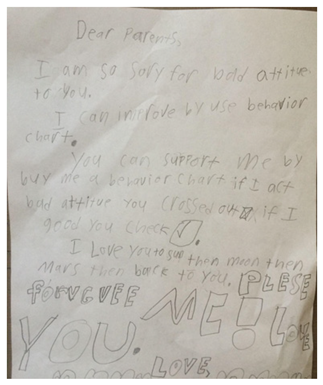 Dear Parents,
I am so sory for bad attitue
to you.
I can improve by use behavior
chart.
You can support me by
buy me a behavior chart if I act
bad attitive you crossed out if I
good you check.
I Love you to sun then moon then
Mars then back to you. PLESE
FORVGVEE ME! I LOVE
YOU.
LOVE